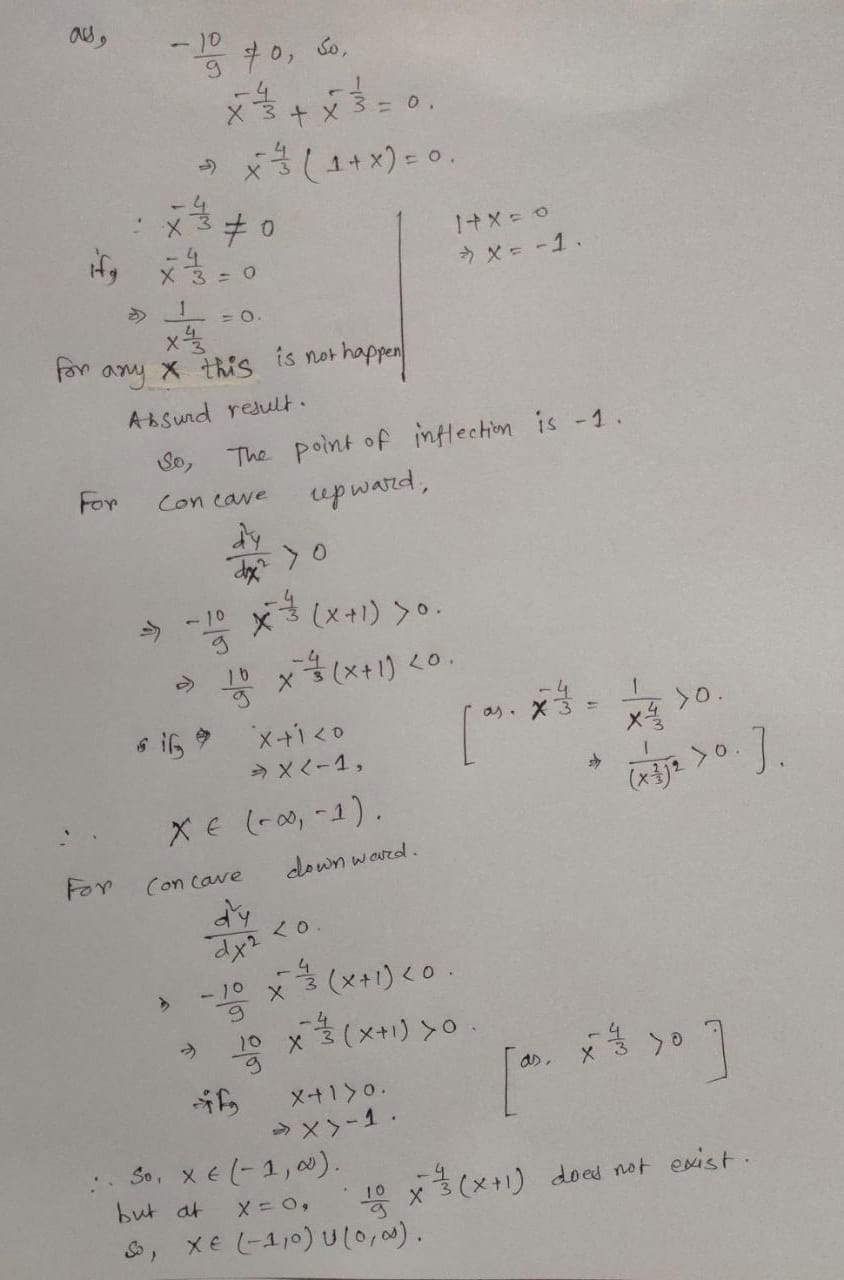 as,
-10/9 ≠ 0, so,
x^{-4/3} + x^{-1/3} = 0.
⇒ x^{-4/3} (1+x) = 0.
∴ x^{-4/3} ≠ 0
if, x^{-4/3} = 0
⇒ 1/x^{4/3} = 0.
For any x this is not happen
1+x = 0
⇒ x = -1.
Absurd result.
So, The point of inflection is -1.
For concave upward,
d²y/dx² > 0
⇒ -10/9 x^{-4/3} (x+1) > 0.
⇒ 10/9 x^{-4/3} (x+1) < 0.
if x+1 < 0
⇒ x < -1,
[as. x^{-4/3} = 1/x^{4/3} > 0.
⇒ 1/(x^{2/3})² > 0.].
∴ x ∈ (-∞, -1).
For concave downward.
d²y/dx² < 0.
⇒ -10/9 x^{-4/3} (x+1) < 0.
⇒ 10/9 x^{-4/3} (x+1) > 0.
if x+1 > 0.
⇒ x > -1.
[as. x^{-4/3} > 0]
∴ So, x ∈ (-1, ∞).
but at x = 0, 10/9 x^{-4/3} (x+1) does not exist.
So, x ∈ (-1,0) ∪ (0,∞).